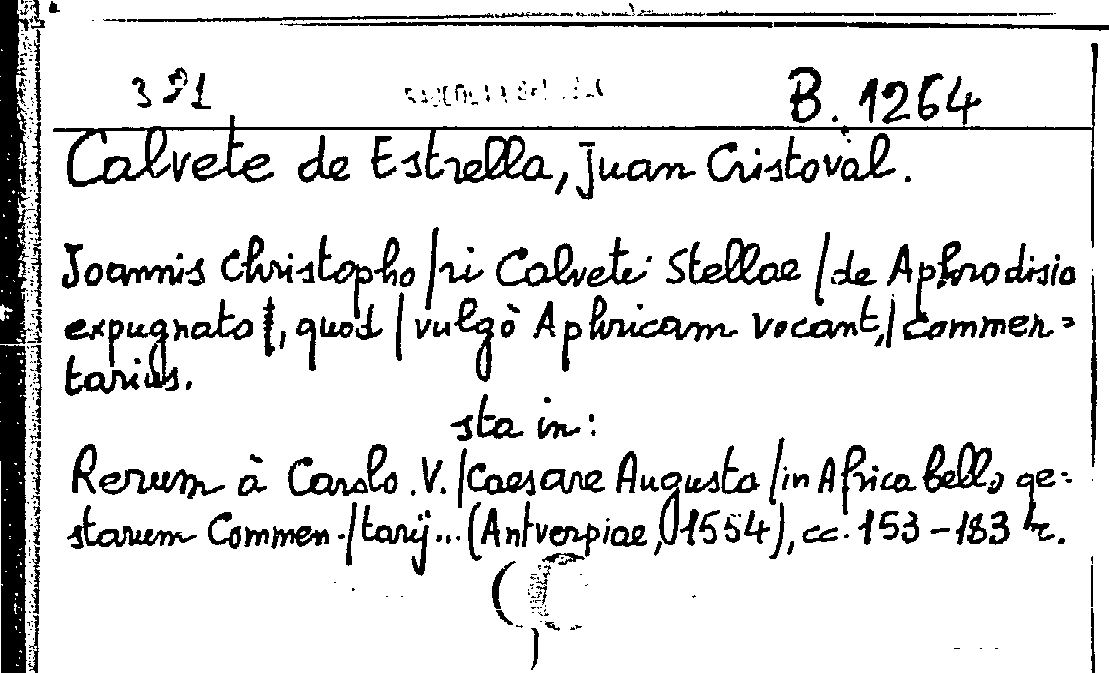 391 B. 1264
Calvete de Estrella, Juan Cristoval.
Joannis Christopho/ri Calveti Stellae /de Aphrodisio
expugnato, quod / vulgò Aphricam vocant,/ Commen=
tarius.
sta in:
Rerum à Carolo .V./Caesare Augusto /in Africa bello ge=
starum Commen-/tarij... (Antverpiae, 1554), cc. 153-183 r.